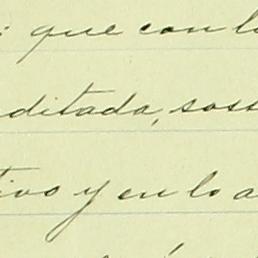 : que con l
ditada, soss
tivo y en lo a